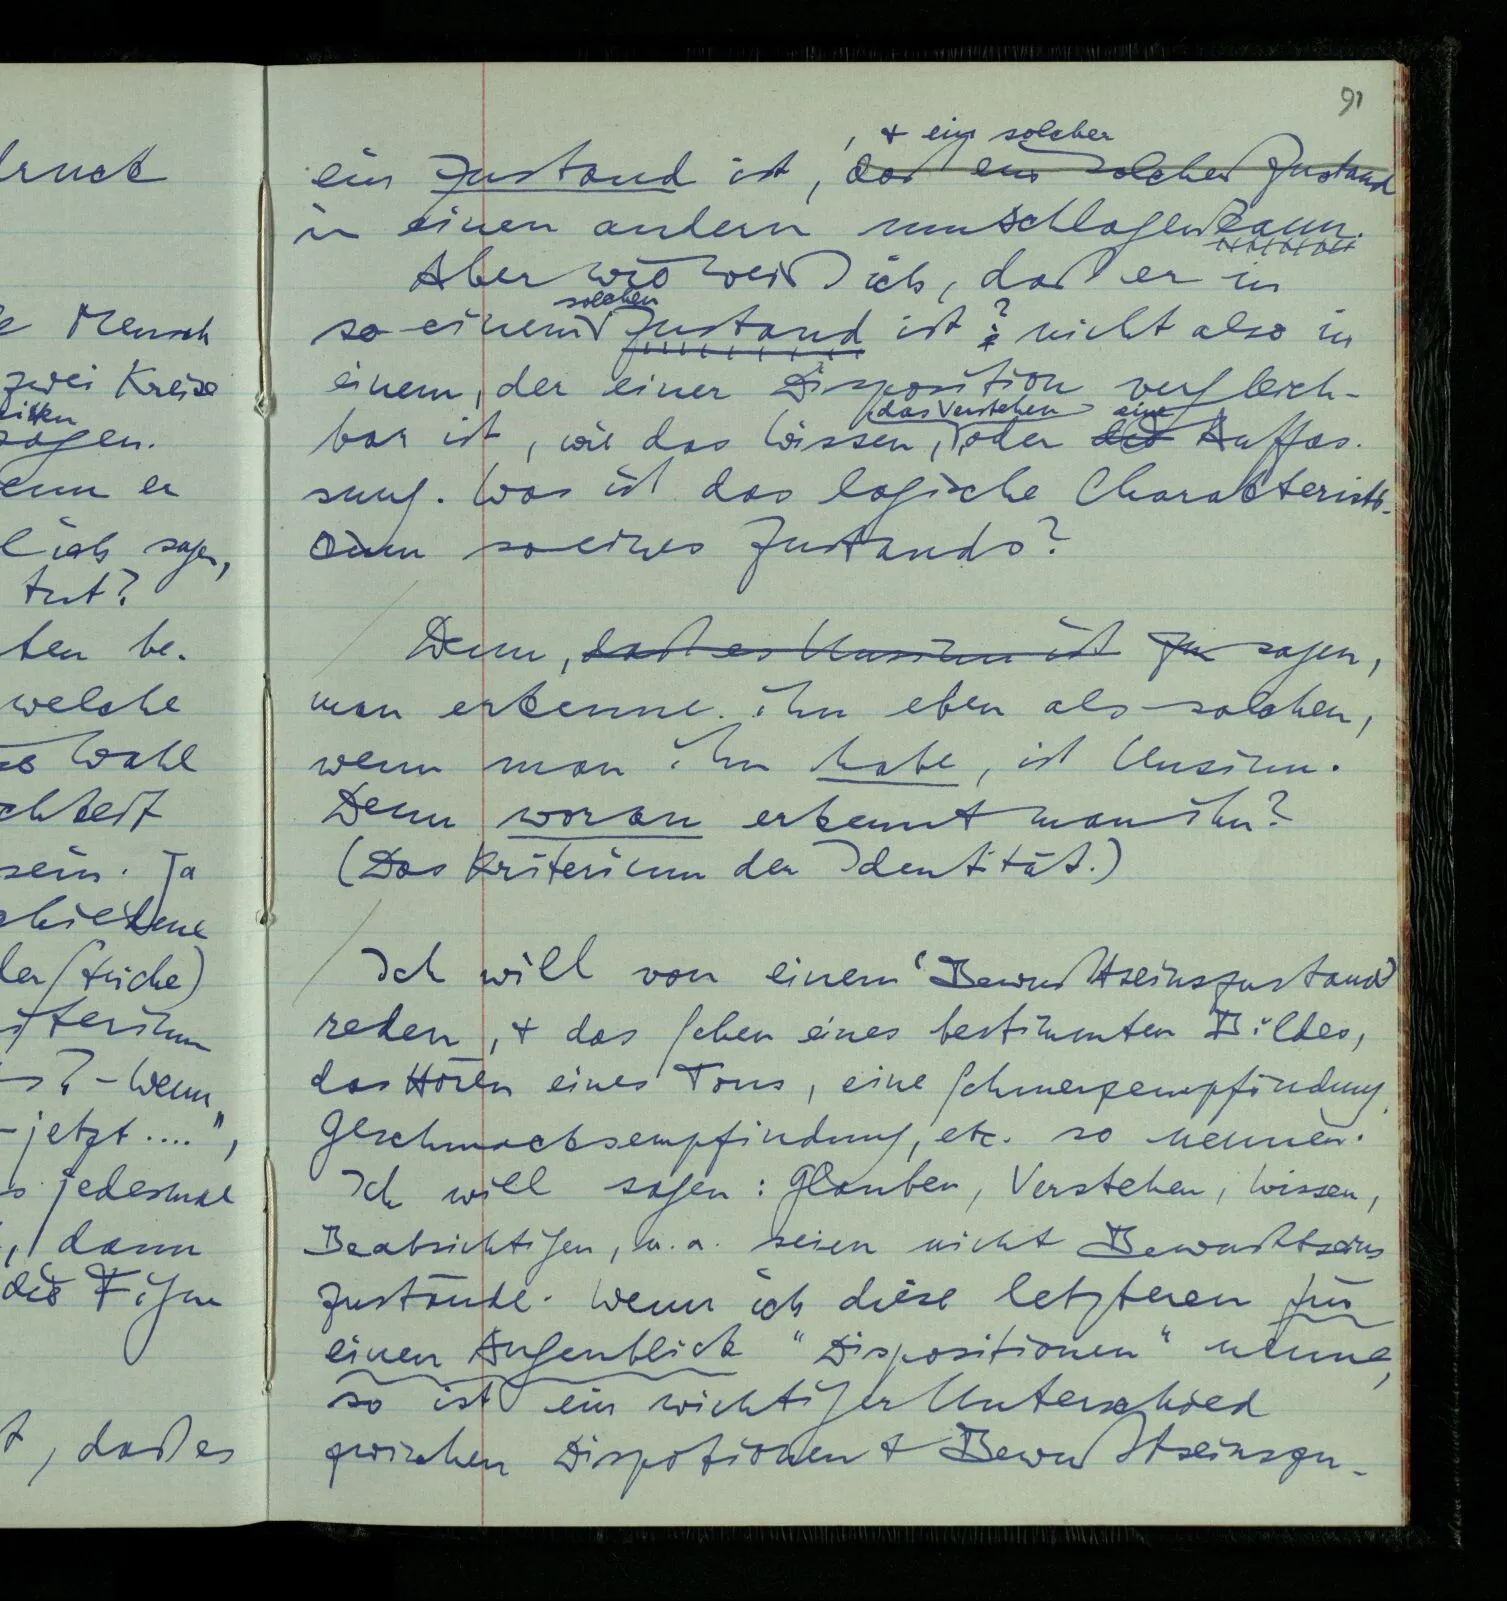 91
druck
e Mensch
zwei Kreise
sagen.
enn er
l ich sagen,
tut?
ten be-
welche
Wahl
sein. Ja
chiedene
iterium
s? – Wenn
– jetzt ....",
s jedesmal
, dann
die Figur
t, daß es
, + ein solcher
ein Zustand ist, daß ein solcher Zustand
in einen andern umschlagen kann.
Aber wie weiß ich, daß er in
solchen
so einem Zustand ist ? nicht also in
einem, der einer Disposition vergleich-
das Verstehen eine
bar ist, wie das Wissen, oder die Auffas-
sung. Was ist das logische Charakteristi-
cum so eines Zustands?
Denn, daß es Unsinn ist zu sagen,
man erkenne ihn eben als solchen,
wenn man ihn habe, ist Unsinn.
Denn woran erkennt man ihn?
(Das Kriterium der Identität.)
Ich will von einem 'Bewußtseinszustand'
reden, + das Sehen eines bestimmten Bildes,
das Hören eines Tons, eine Schmerzempfindung,
Geschmacksempfindung, etc. so nennen.
Ich will sagen: Glauben, Verstehen, Wissen,
Beabsichtigen, u.a. seien nicht Bewußtseins
zustände. Wenn ich diese letzteren für
einen Augenblick "Dispositionen" nenne,
so ist ein wichtiger Unterschied
zwischen Dispotionen + Bewußtseinszu-